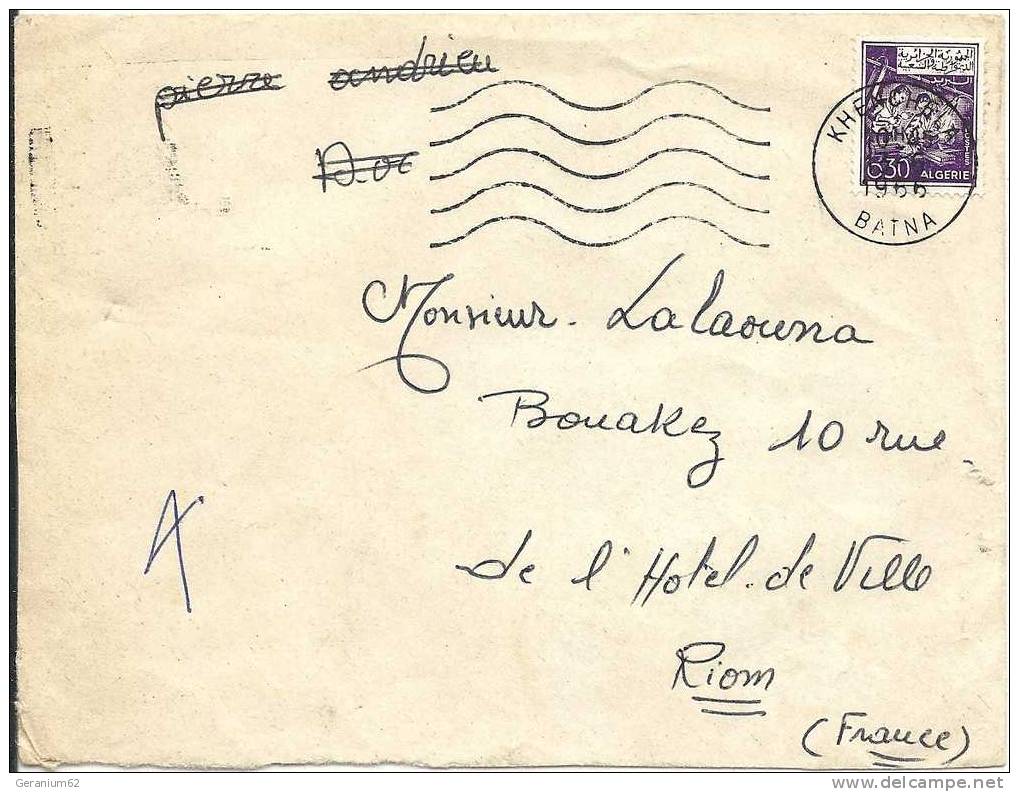 pierre andrieu
الجمهورية الجزائرية
الديمقراطية الشعبية
KHENCHELA
1966
BATNA
0.30 ALGERIE
POSTES
Monsieur. Lalaouna
Bouakez 10 rue
de l'Hotel. de Ville
Riom
(France)
Geranium62